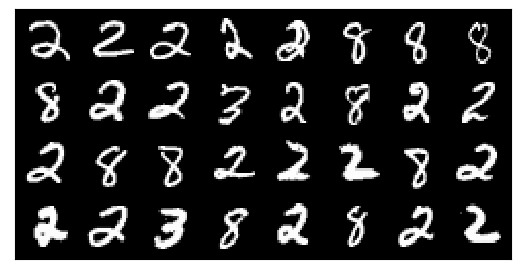 2 2 2 2 2 8 8 8
8 2 2 3 2 8 2 2
2 8 8 2 2 2 8 2
2 2 3 8 2 8 2 2